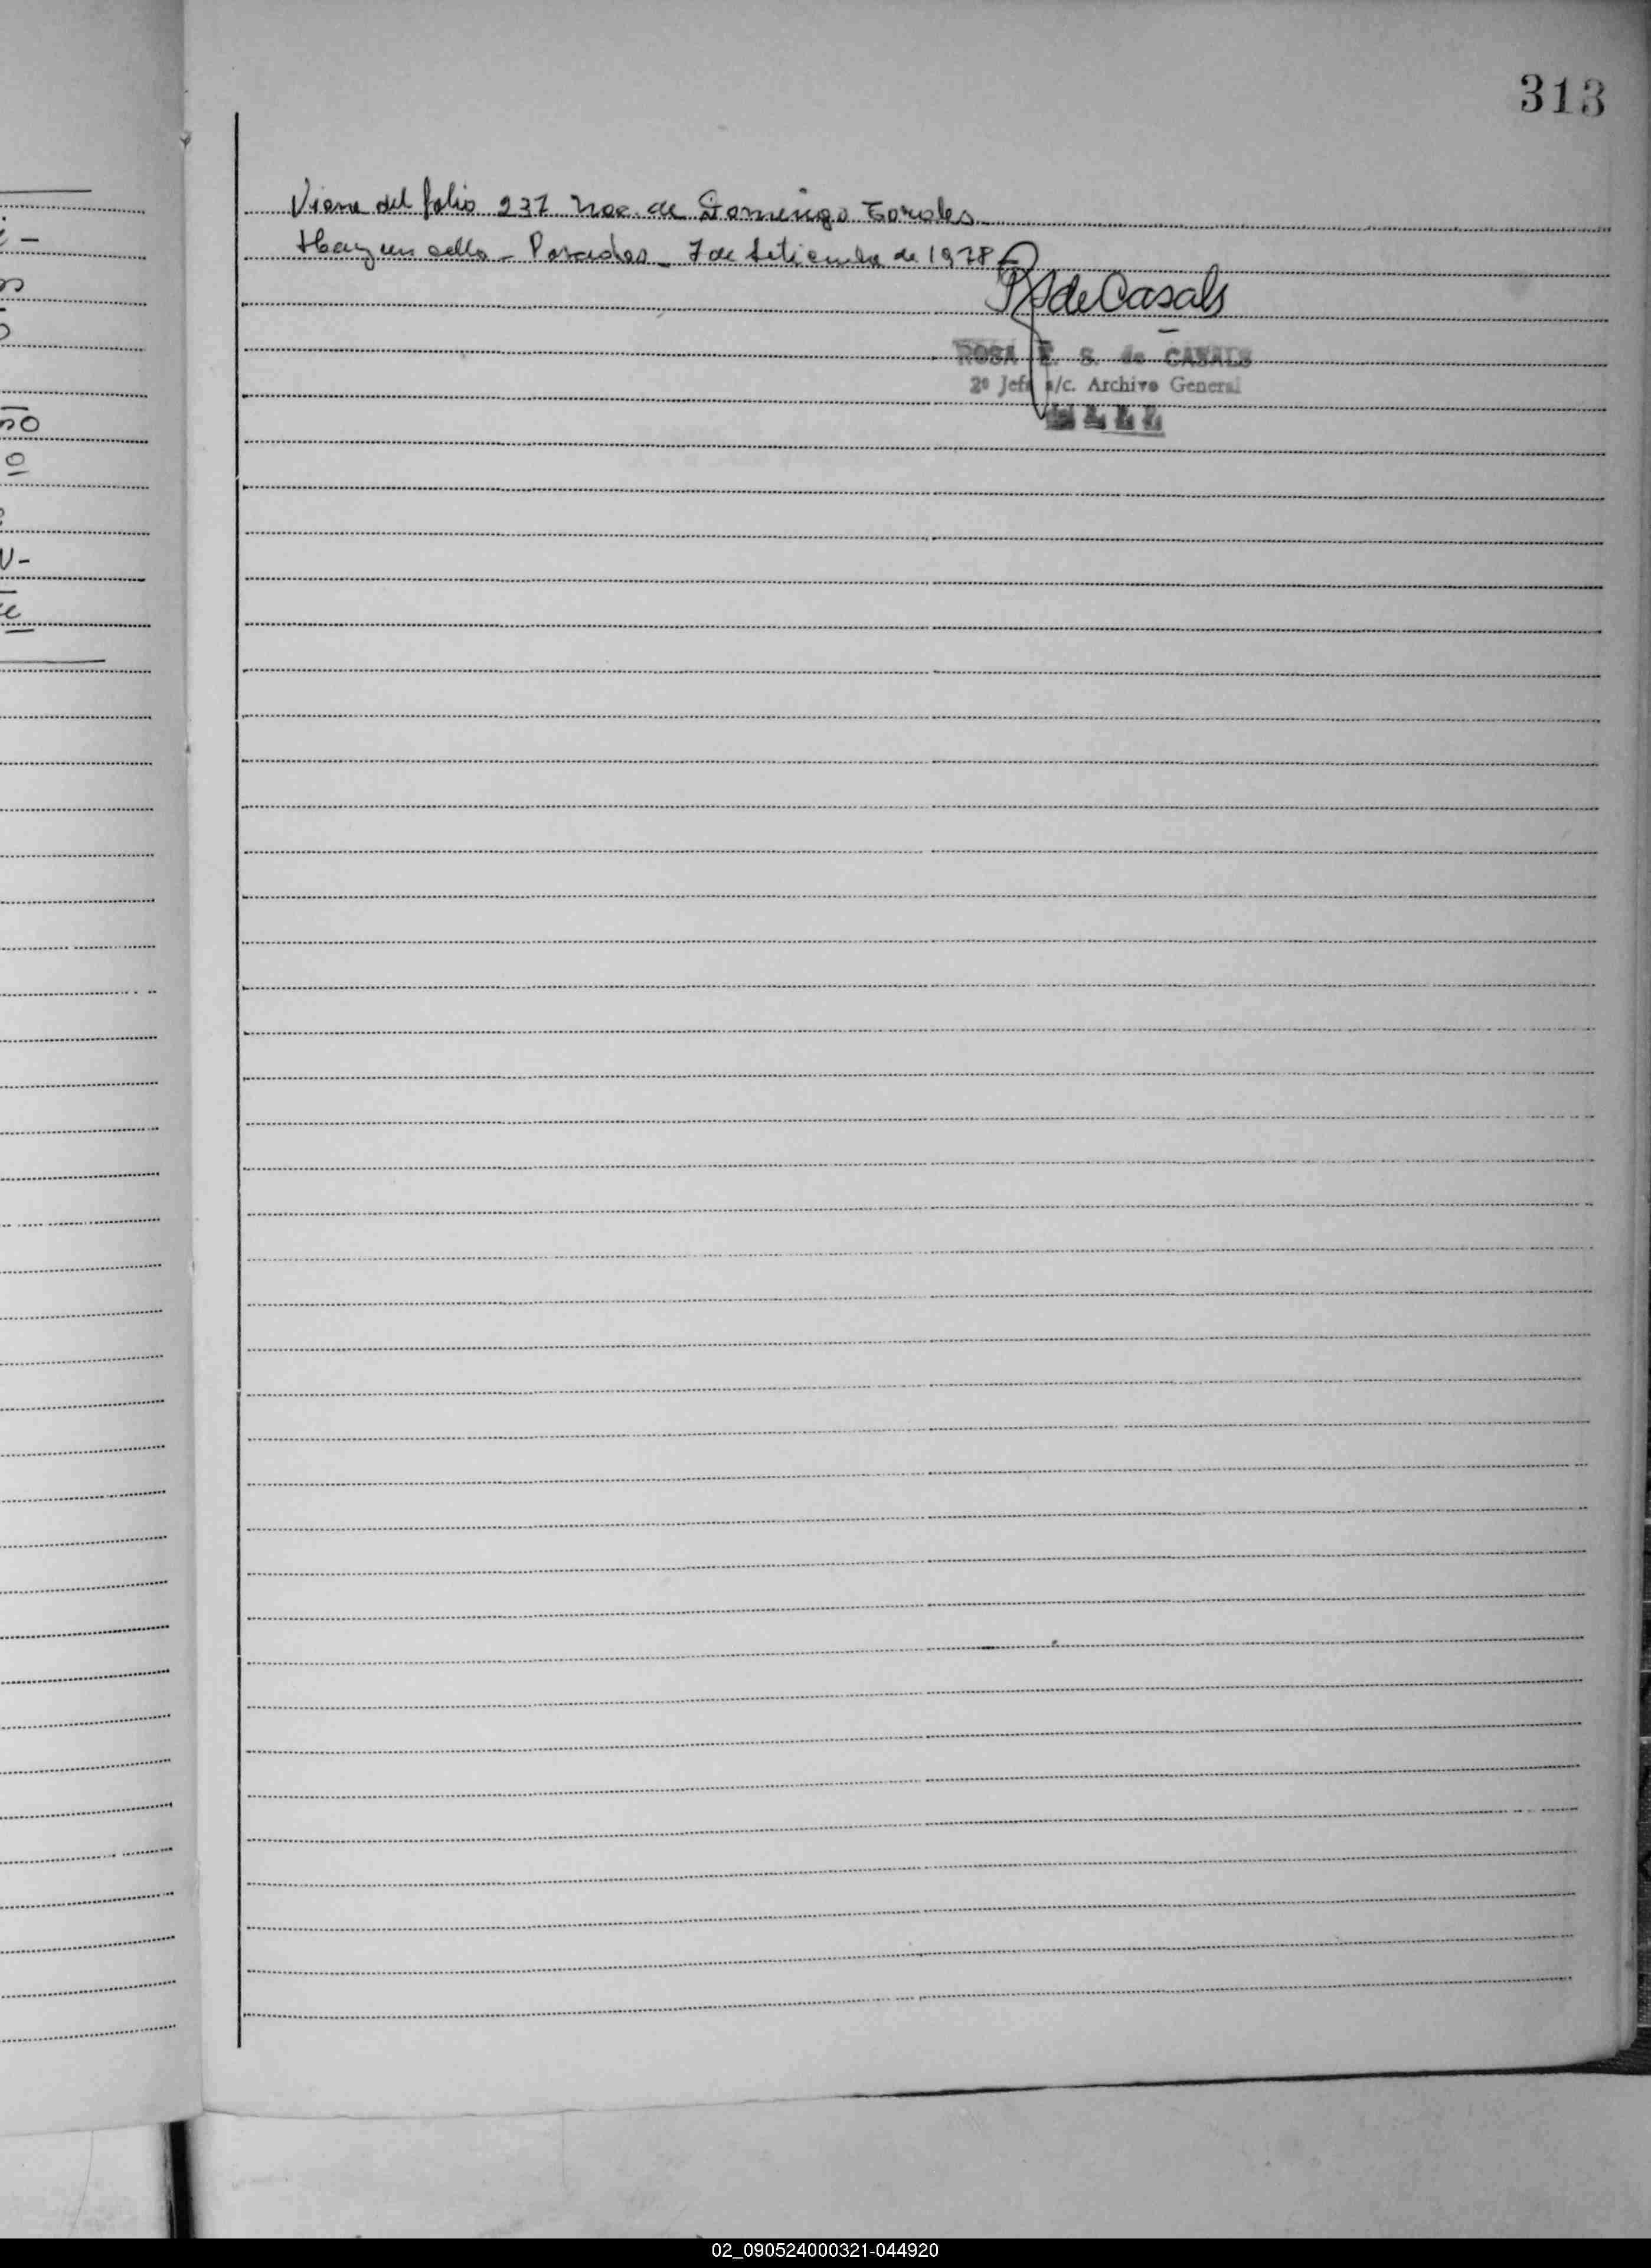 313
Viene del folio 237 Nac. de Domingo Torales
Hay un sello - Posadas - 7 de Setiembre de 1978
RS de Casals
ROSA E. S. de CASALS
2º Jefe a/c. Archivo General
02_090524000321-044920